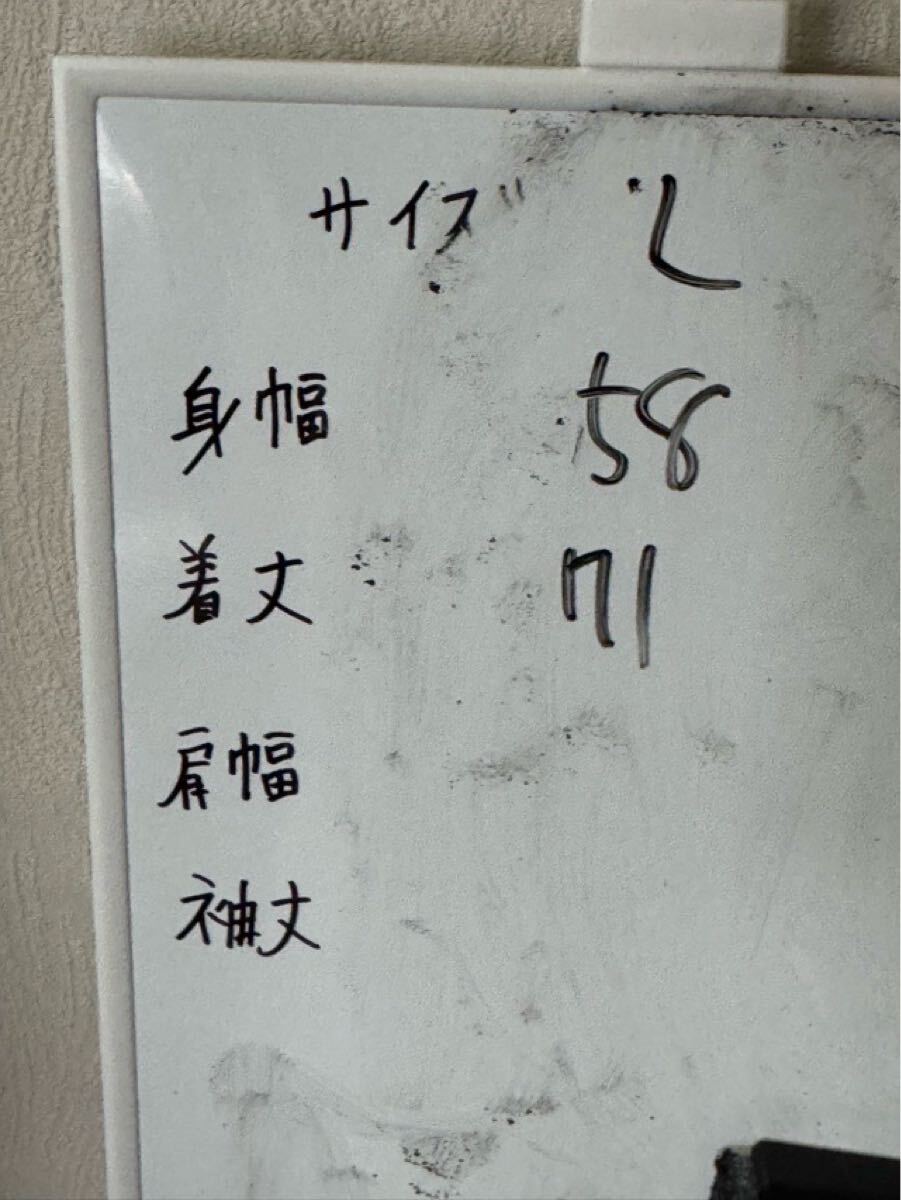 サイズ L
身幅 58
着丈 71
肩幅
袖丈